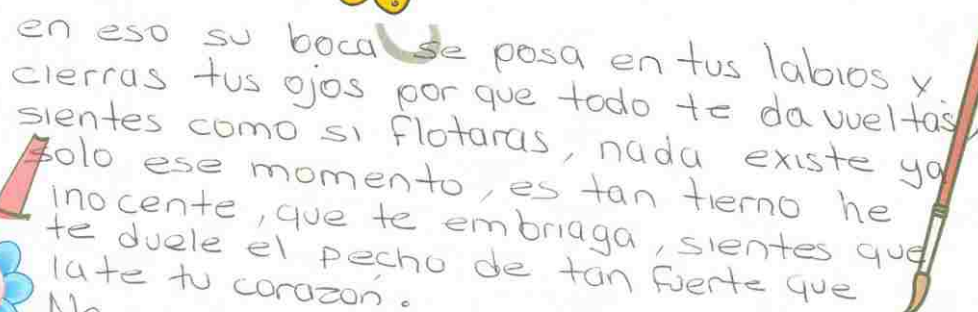 en eso su boca se posa en tus labios y
cierras tus ojos por que todo te da vueltas
sientes como si flotaras, nada existe ya
solo ese momento, es tan tierno he
inocente, que te embriaga, sientes que
te duele el pecho de tan fuerte que
late tu corazón.